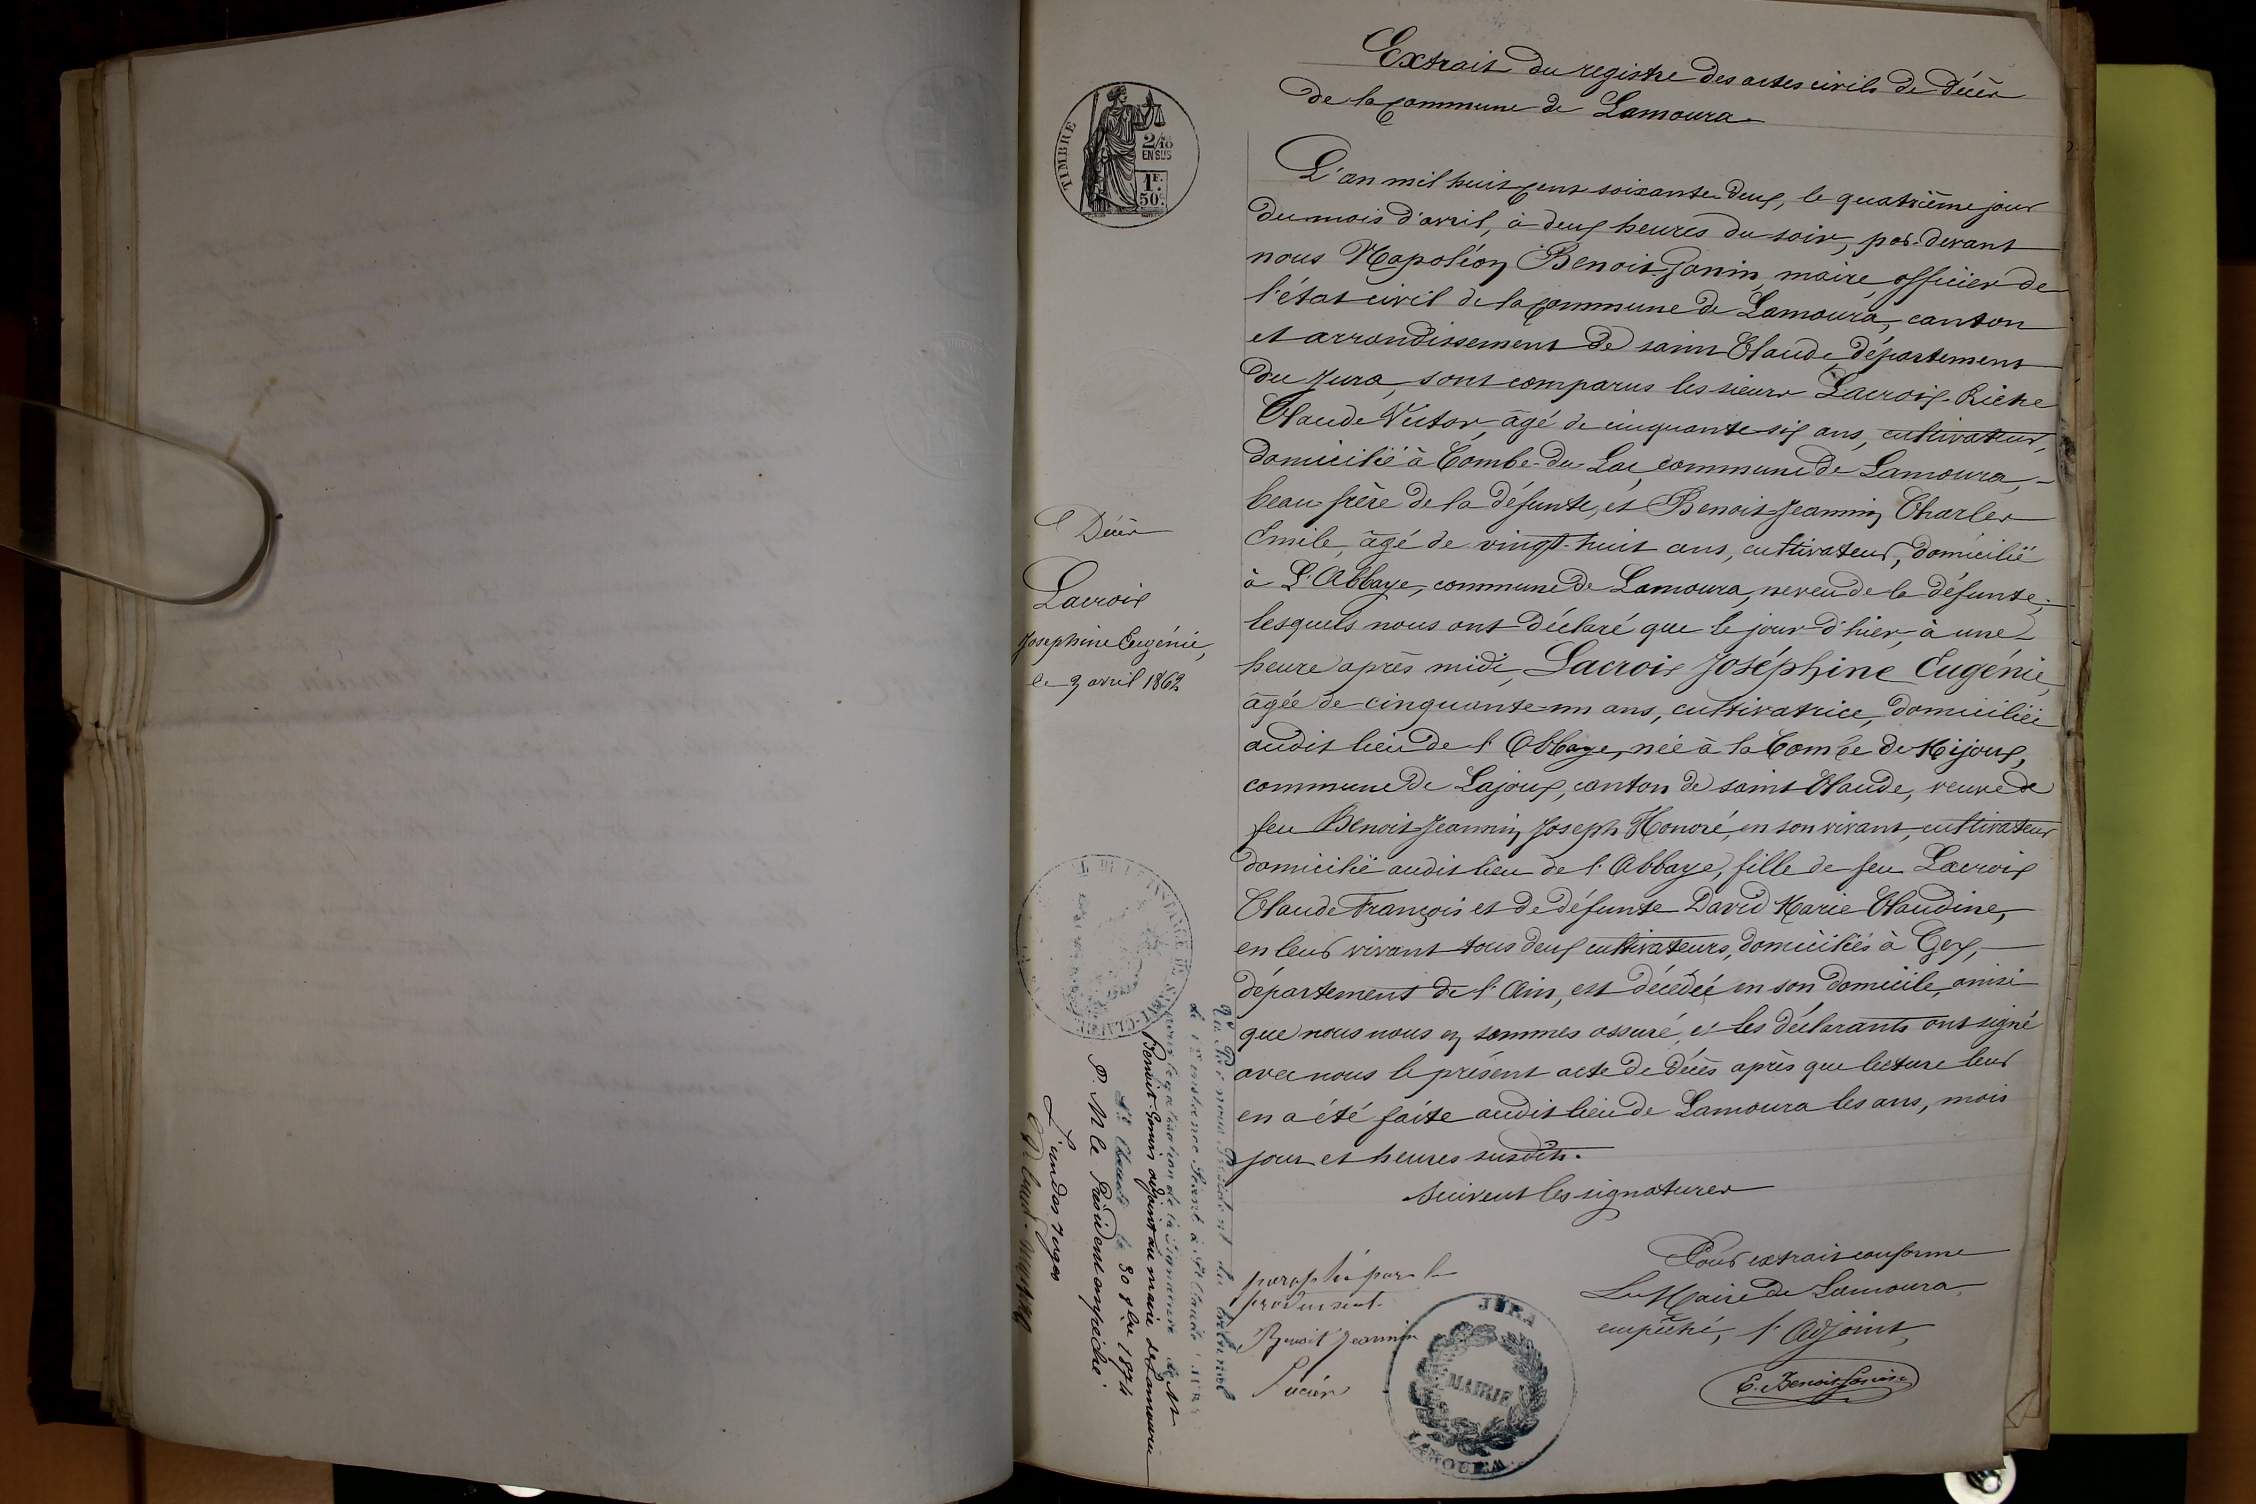 Extrait du registre des actes civils de décès
de la Commune de Lamoura
TIMBRE
2/10
EN SUS
1F.
50c.
L'an mil huit cent soixante deux, le quatrième jour
du mois d'avril, à deux heures du soir, par-devant
nous Napoléon Benoit-Janin, maire, officier de
l'état civil de la commune de Lamoura, canton
et arrondissement de saint Claude, département
du Jura, sont comparus les sieurs Lacroix-Riche
Claude Victor, âgé de cinquante six ans, cultivateur,
domicilié à Combe-du-Lac, commune de Lamoura,
beau frère de la défunte, et Benoit-Jeannin Charles
Emile, âgé de vingt-huit ans, cultivateur, domicilié
à L'Abbaye, commune de Lamoura, neveu de la défunte;
lesquels nous ont déclaré que le jour d'hier, à une
heure après midi, Lacroix Joséphine Eugénie,
âgée de cinquante-un ans, cultivatrice, domiciliée
audit lieu de l'Abbaye, née à la Combe de Mijoux,
commune de Lajoux, canton de saint Claude, veuve de
feu Benoit-Jeannin Joseph Honoré, en son vivant, cultivateur
domicilié audit lieu de l'Abbaye, fille de feu Lacroix
Claude François et de défunte David Marie Claudine,
en leur vivant tous deux cultivateurs, domiciliés à Gex,
département de l'Ain, est décédée en son domicile, ainsi
que nous nous en sommes assuré, et les déclarants ont signé
avec nous le présent acte de décès après que lecture leur
en a été faite audit lieu de Lamoura les ans, mois
jour et heures susdits.
suivent les signatures
Pour extrait conforme
Le Maire de Lamoura,
empêché, l'Adjoint,
E. Benoit Janin
Décès
Lacroix
Joséphine Eugénie,
le 3 avril 1862
Vu Par nous Président du tribunal
de 1re instance Séant à St Claude JURA
pour légalisation de la signature de Mr
Benoit-Janin adjoint au maire de Lamoura
St Claude le 30 8bre 1874
P. M le Président empêché
paraphé par le
Benoit Jeannin
Lucien
JURA
MAIRIE
LAMOURA